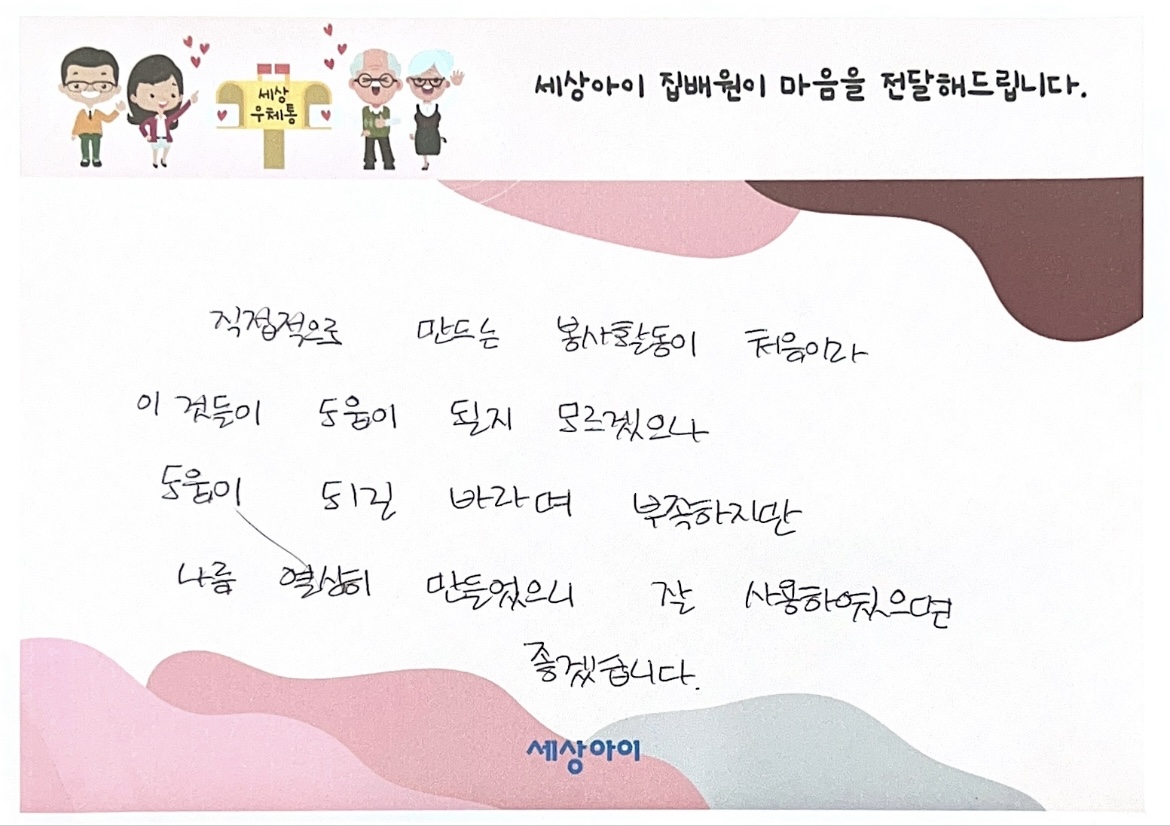 세상아이 집배원이 마음을 전달해드립니다.
세상
우체통
직접적으로 만드는 봉사활동이 처음이라
이 것들이 도움이 될지 모르겠으나
도움이 되길 바라며 부족하지만
나름 열심히 만들었으니 잘 사용하였으면
좋겠습니다.
세상아이